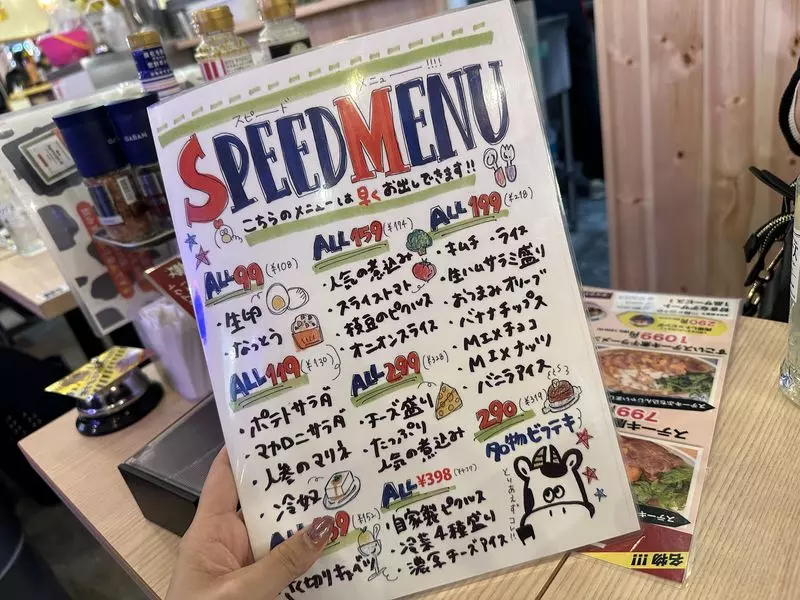 スピード メニュー!!!
SPEEDMENU
こちらのメニューは早くお出しできます!!
ALL 99 (¥108)
・生卵
・なっとう
ALL 119 (¥130)
・ポテトサラダ
・マカロニサラダ
・人参のマリネ
・冷奴
ALL
39 (¥152)
切りキャベツ
ALL 159 (¥174)
・人気の煮込み
・スライストマト
・枝豆のピクルス
・オニオンスライス
ALL 299 (¥328)
・チーズ盛り
・たっぷり
人気の煮込み
ALL ¥398
・自家製ピクルス
・冷菜4種盛り
・濃厚チーズアイス
ALL 199 (¥218)
・キムチ ・ライス
・生ハムサラミ盛り
・おつまみオリーブ
・バナナチップス
・MIXチョコ
・MIXナッツ
・バニラアイス
290 (¥319)
名物ビフテキ
とりあえずコレ!!
GABAN
290円
1099円
799円
ステーキ
名物!!!